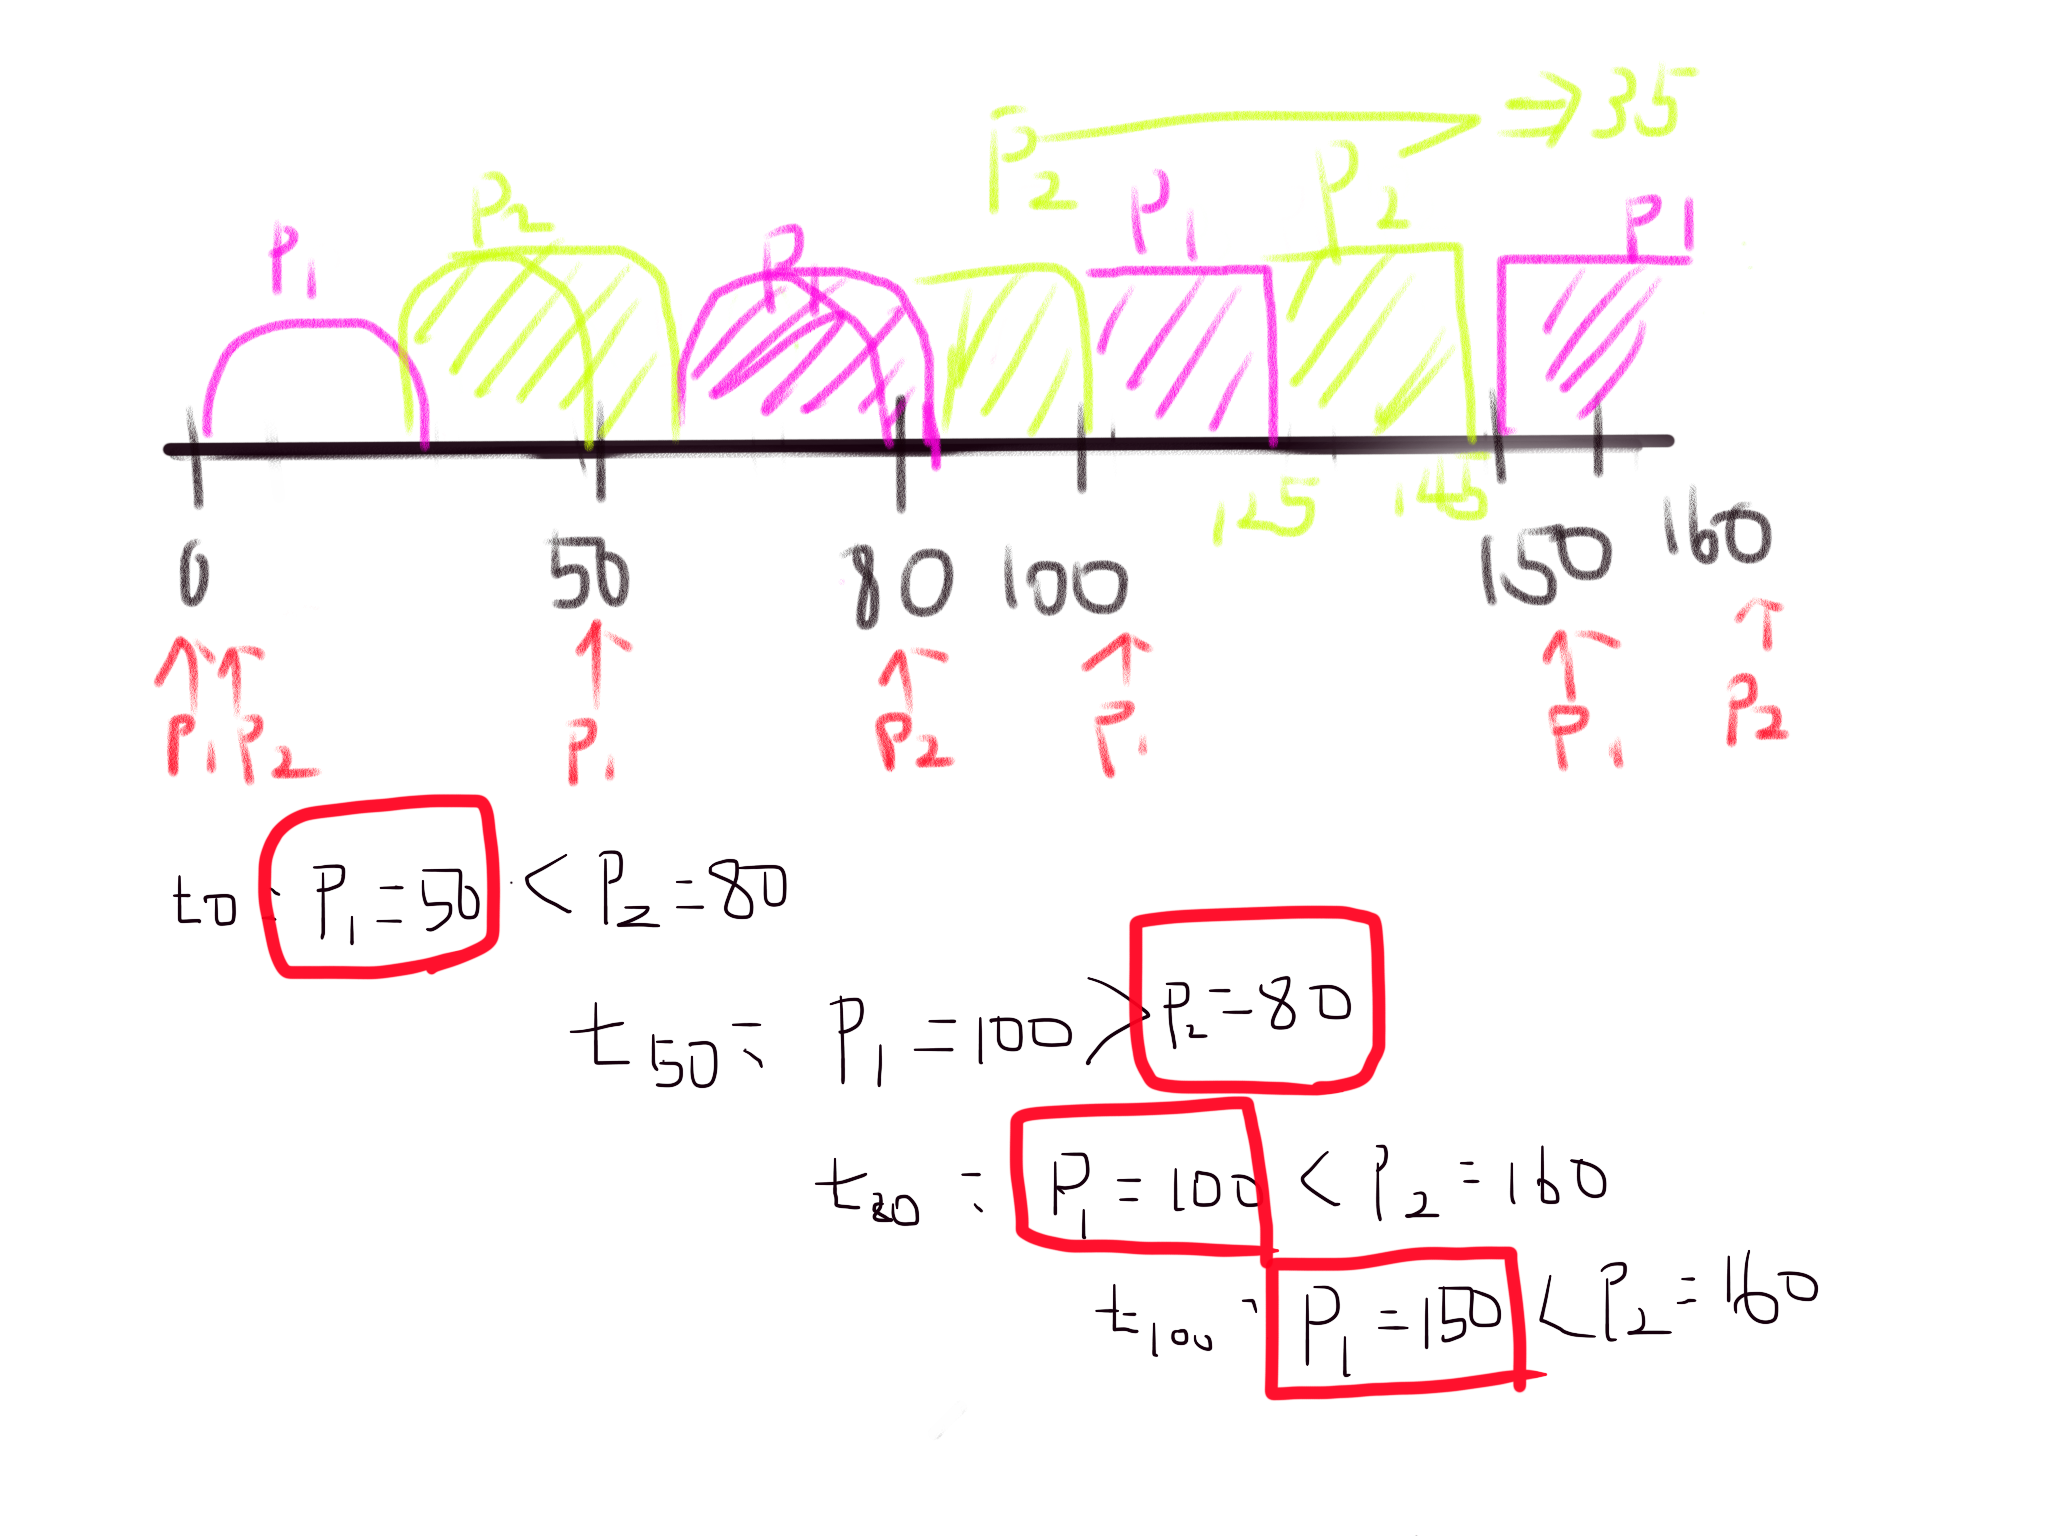 P2 ⇒ 35
P1 P2 P1 P1 P2 P1
125 145
0 50 80 100 150 160
P1 P2 P1 P2 P1 P1 P2
t0: P1=50 < P2=80
t50: P1=100 > P2=80
t80: P1=100 < P2=160
t100: P1=150 < P2=160